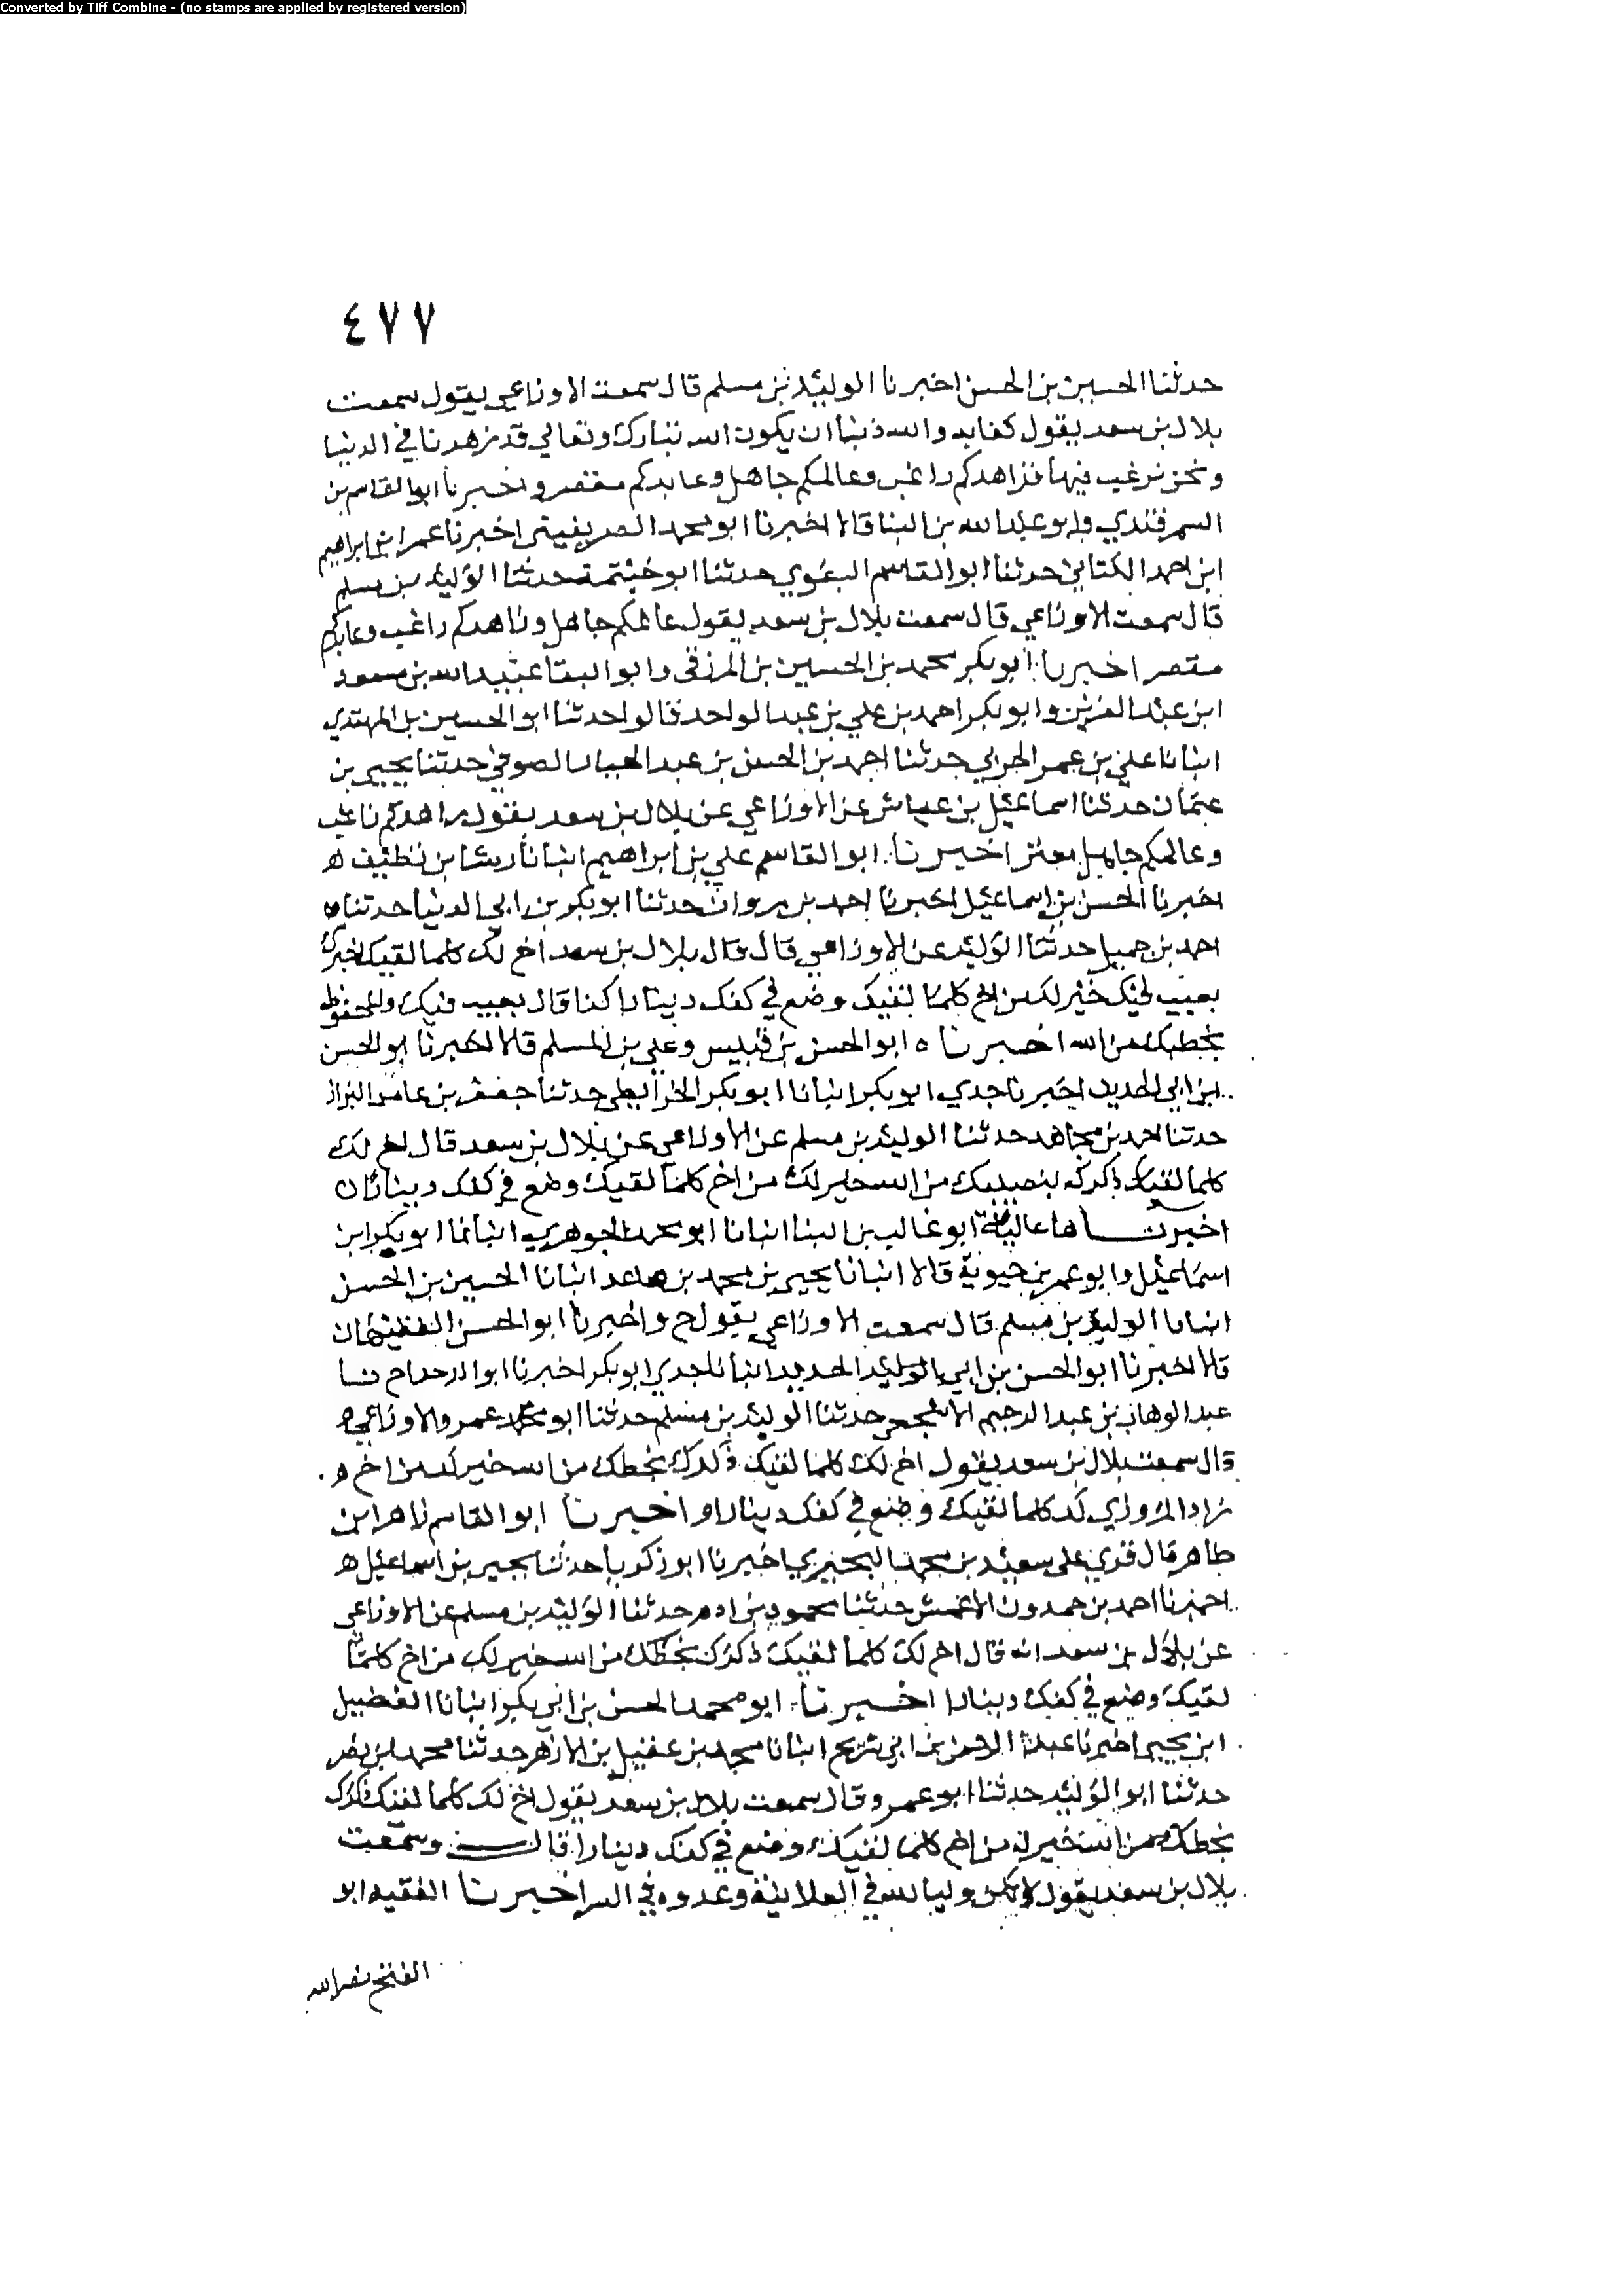 Converted by Tiff Combine - (no stamps are applied by registered version)
٤٧٧
حدثنا الحسين بن الحسن اخبرنا الوليد بن مسلم قال سمعت الاوزاعي يقول سمعت
بلال بن سعد يقول كفا به والله ذنبا ان يكون الله تبارك وتعالي قد زهدنا في الدنيا
ونحن نرغب فيها فزاهدكم راغب وعالمكم جاهل وعابدكم مقصر واخبرنا ابو القاسم بن
السمرقندي وابو عبد الله بن البنا قالا اخبرنا ابو محمد الصريفيني اخبرنا عمر بن ابراهيم
ابن احمد الكتاني حدثنا ابو القاسم البغوي حدثنا ابو خيثمة حدثنا الوليد بن مسلم
قال سمعت الاوزاعي قال سمعت بلال بن سعد يقول عالمكم جاهل وزاهدكم راغب وعابدكم
مقصر اخبرنا ابو بكر محمد بن الحسين بن المزرقي وابو البقا عبيد الله بن مسعود
ابن عبد العزيز وابو بكر احمد بن علي بن عبد الواحد قالوا حدثنا ابو الحسين بن المهتدي
انبانا علي بن عمر الحربي حدثنا احمد بن الحسن بن عبد الجبار الصوفي حدثنا يحيى بن
عثمان حدثنا اسماعيل بن عياش عن الاوزاعي عن بلال بن سعد يقول زاهدكم راغب
وعالمكم جاهل اخبرنا ابو القاسم علي بن ابراهيم انبانا رشا بن نظيف ه
اخبرنا الحسن بن اسماعيل اخبرنا احمد بن مروان حدثنا ابو بكر بن ابي الدنيا حدثنا ه
احمد بن جميل حدثنا الوليد عن الاوزاعي قال قال بلال بن سعد اخ لك كلما لقيك اخبرك
بعيب فيك خير لك من اخ كلما لقيك وضع في كفك دينارا كذا قال بعيب فيك والمحفوظ
بحظك من الله اخبرنا ه ابو الحسن بن قبيس وعلي بن المسلم قالا اخبرنا ابو الحسن
ابن ابي الحديد اخبرنا جدي ابو بكر انبانا ابو بكر الخرايطي حدثنا جعفر بن عامر البزاز
حدثنا احمد بن مجاهد حدثنا الوليد بن مسلم عن الاوزاعي عن بلال بن سعد قال اخ لك
كلما لقيك ذكرك بنصيبك من الله خير لك من اخ كلما لقيك وضع في كفك دينارا ن
اخبرناها عالية ابو غالب بن البنا انبانا ابو محمد الجوهري انبانا ابو بكر ابن
اسماعيل وابو عمر بن حيوية قالا انبانا يحيى بن محمد بن صاعد انبانا الحسين بن الحسن
انبانا الوليد بن مسلم قال سمعت الاوزاعي يقول ح واخبرنا ابو الحسن الفقيهان
قالا اخبرنا ابو الحسن بن ابي الحديد انبانا جدي ابو بكر اخبرنا ابو الدحداح نا
عبد الوهاب بن عبد الرحيم الاشجعي حدثنا الوليد بن مسلم حدثنا ابو عمرو الاوزاعي ه
قال سمعت بلال بن سعد يقول اخ لك كلما لقيك ذكرك بحظك من الله خير لك من اخ ه
زاد المروزي لك كلما لقيك وضع في كفك دينارا واخبرنا ابو القاسم زاهر ابن
طاهر قال قري على سعيد بن محمد البحيري اخبرنا ابو زكريا حدثنا يحيى بن اسماعيل ه
اخبرنا احمد بن حمدون الاعمش حدثنا محمود بن ادم حدثنا الوليد بن مسلم عن الاوزاعي
عن بلال بن سعد انه قال اخ لك كلما لقيك ذكرك بحظك من الله خير لك من اخ كلما
لقيك وضع في كفك دينارا اخبرنا ابو محمد الحسن بن ابي بكر انبانا الفضيل
ابن يحيى اخبرنا عبد الرحمن بن ابي شريح انبانا محمد بن عقيل بن الازهر حدثنا محمد بن نصر
حدثنا ابو الوليد حدثنا ابو عمرو قال سمعت بلال بن سعد يقول اخ لك كلما لقيك ذكرك
بحظك من الله خير لك من اخ كلما لقيك وضع في كفك دينارا قال وسمعت
بلال بن سعد يقول لا تكن وليا لله في العلانية وعدوه في السر اخبرنا الفقيه ابو
الفتح نصر الله